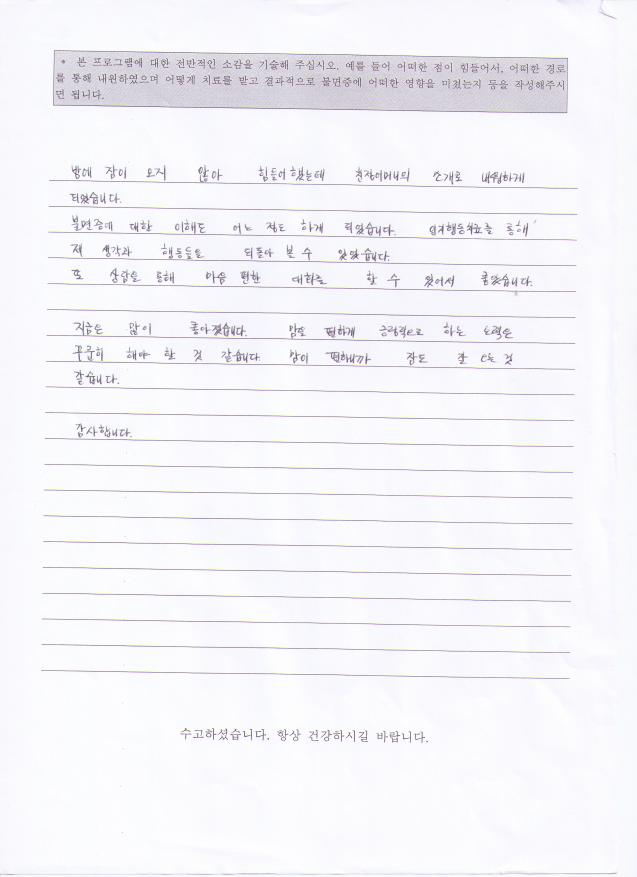 * 본 프로그램에 대한 전반적인 소감을 기술해 주십시오. 예를 들어 어떠한 점이 힘들어서, 어떠한 경로
를 통해 내원하였으며 어떻게 치료를 받고 결과적으로 불면증에 어떠한 영향을 미쳤는지 등을 작성해주시
면 됩니다.
밤에 잠이 오지 않아 힘들어 했는데 친정어머니의 소개로 내원하게
되었습니다.
불면증에 대한 이해도 어느 정도 하게 되었습니다. 인지행동치료를 통해
제 생각과 행동들을 되돌아 볼 수 있었습니다.
또 상담을 통해 마음 편한 대화를 할 수 있어서 좋았습니다.
지금은 많이 좋아졌습니다. 맘도 편하게 긍정적으로 하는 노력은
꾸준히 해야 할 것 같습니다 맘이 편하니까 잠도 잘 오는 것
같습니다.
감사합니다.
수고하셨습니다. 항상 건강하시길 바랍니다.